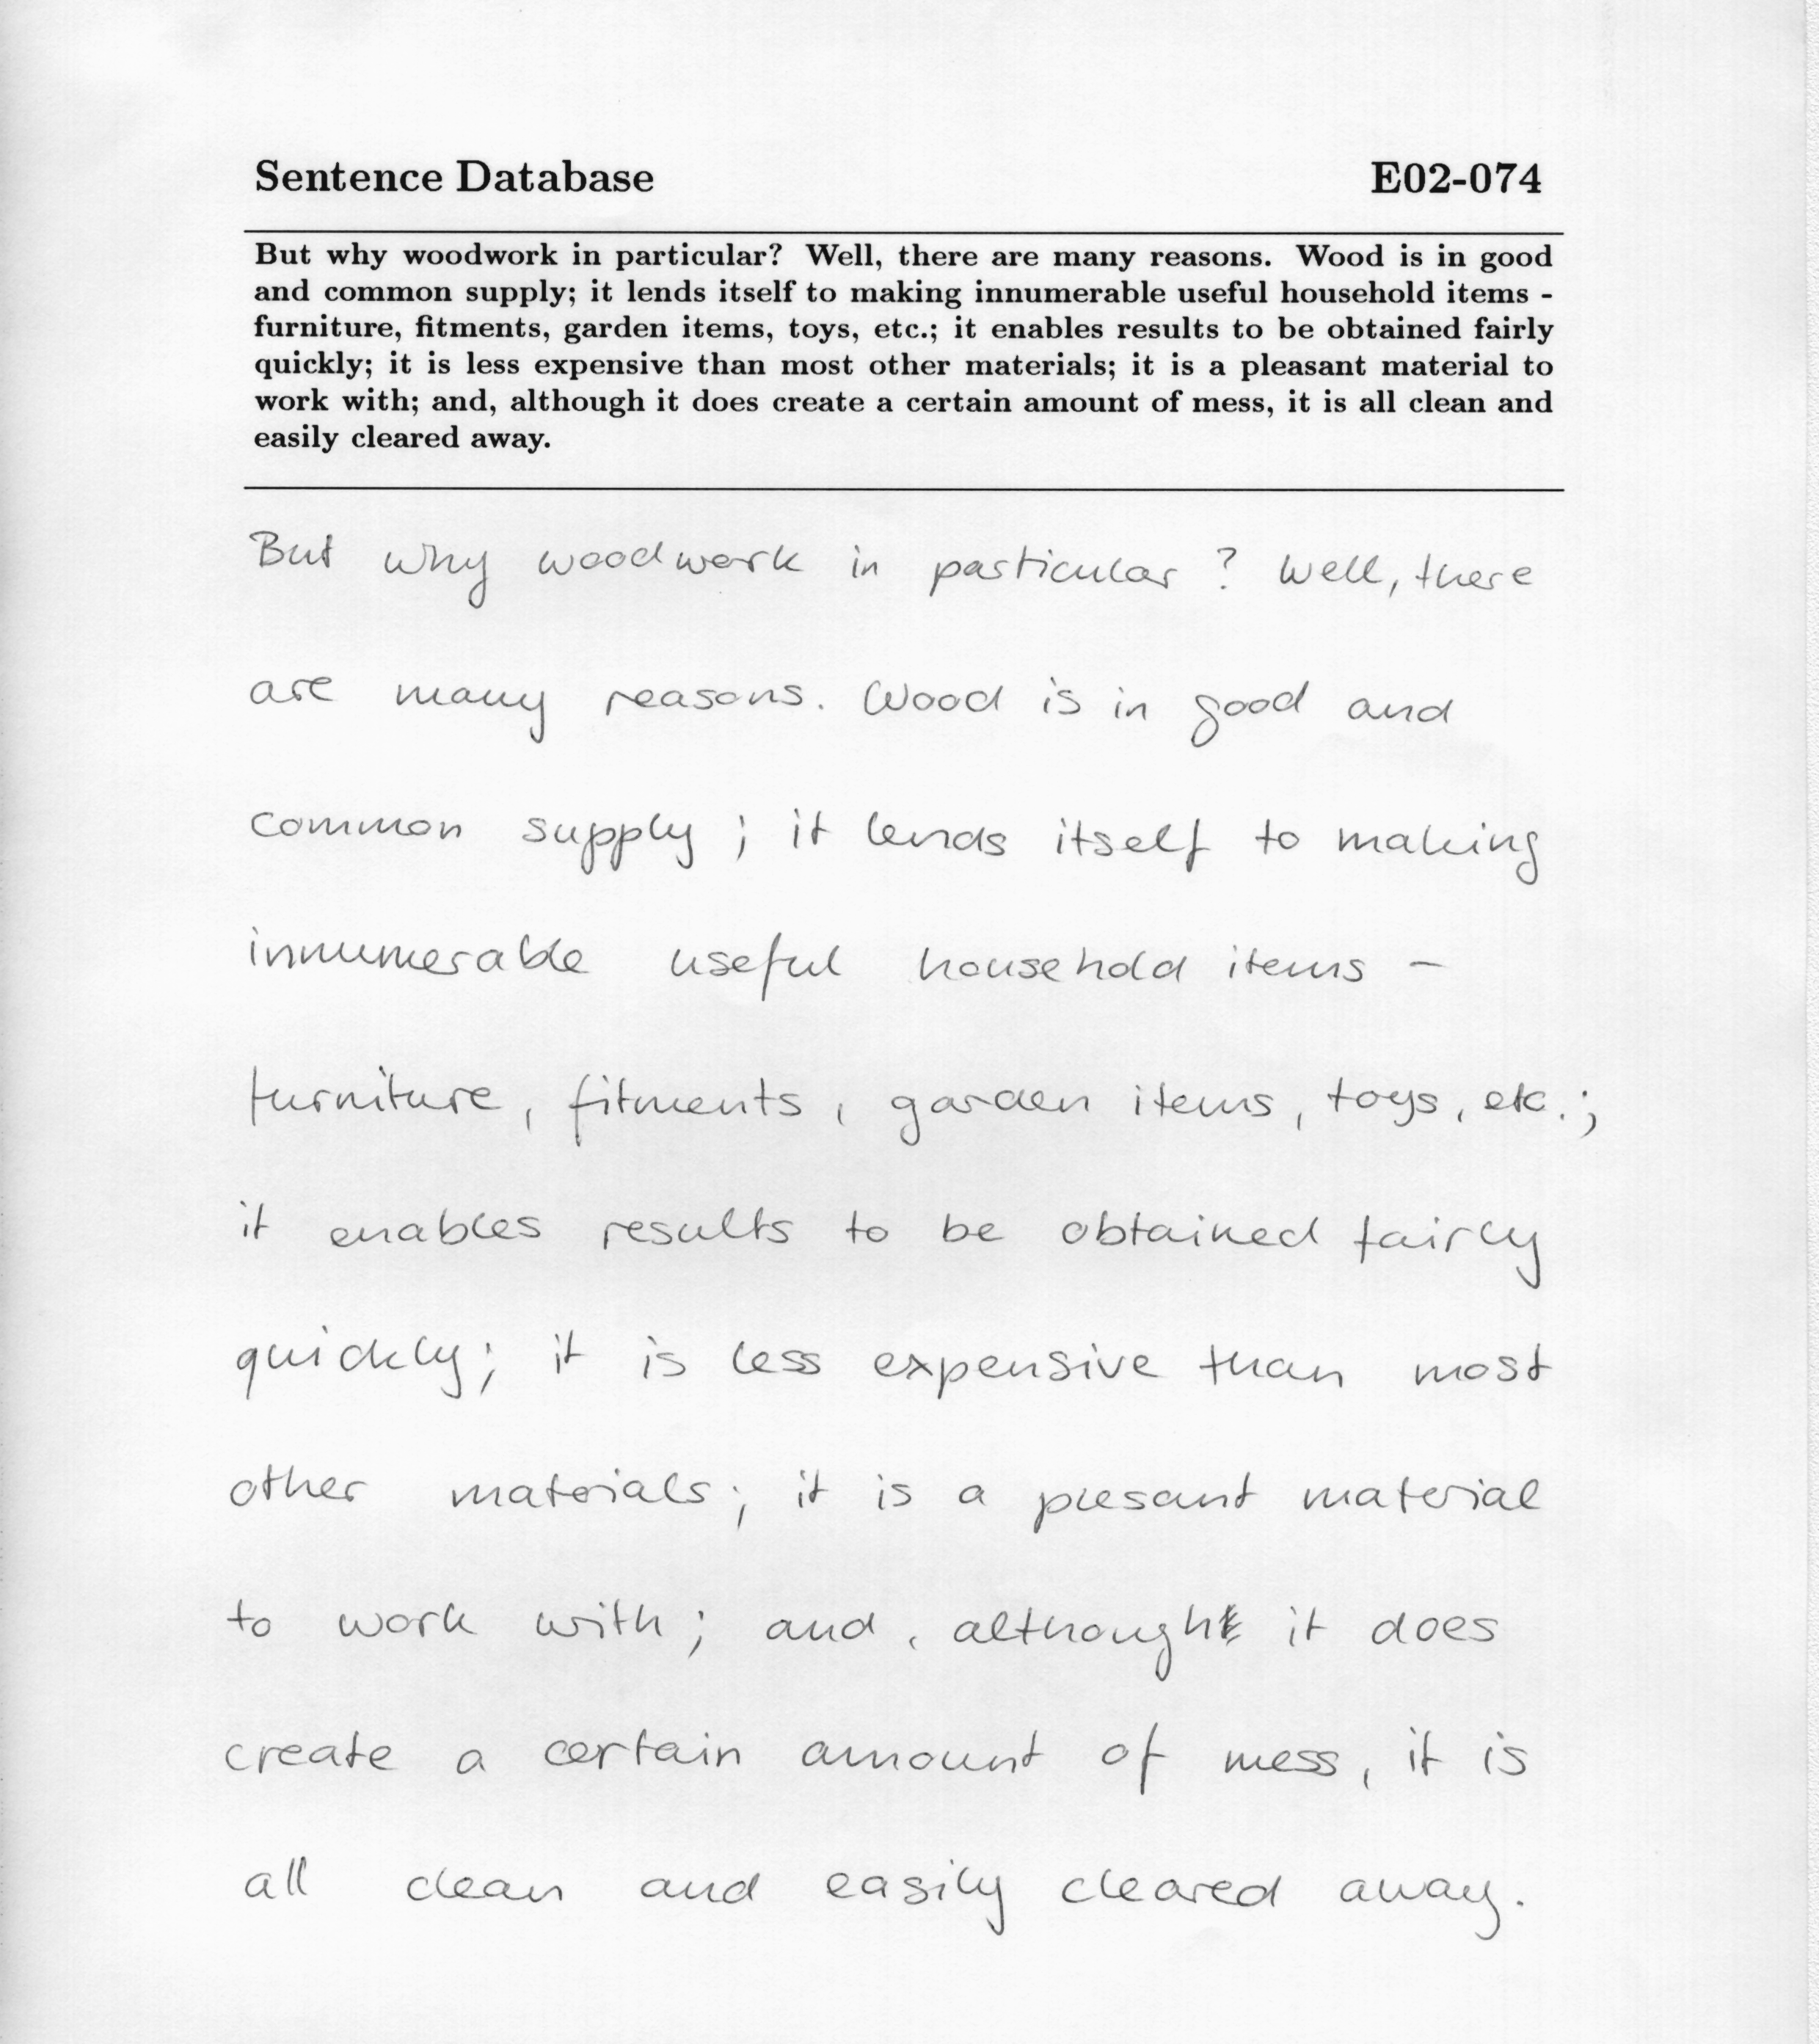 Sentence Database E02-074
But why woodwork in particular? Well, there are many reasons. Wood is in good
and common supply; it lends itself to making innumerable useful household items -
furniture, fitments, garden items, toys, etc.; it enables results to be obtained fairly
quickly; it is less expensive than most other materials; it is a pleasant material to
work with; and, although it does create a certain amount of mess, it is all clean and
easily cleared away.
But why woodwork in particular ? Well, there
are many reasons. Wood is in good and
common supply ; it lends itself to making
innumerable useful household items -
furniture, fitments, garden items, toys, etc.;
it enables results to be obtained fairly
quickly; it is less expensive than most
other materials; it is a plesant material
to work with; and, although it does
create a certain amount of mess, it is
all clean and easily cleared away.